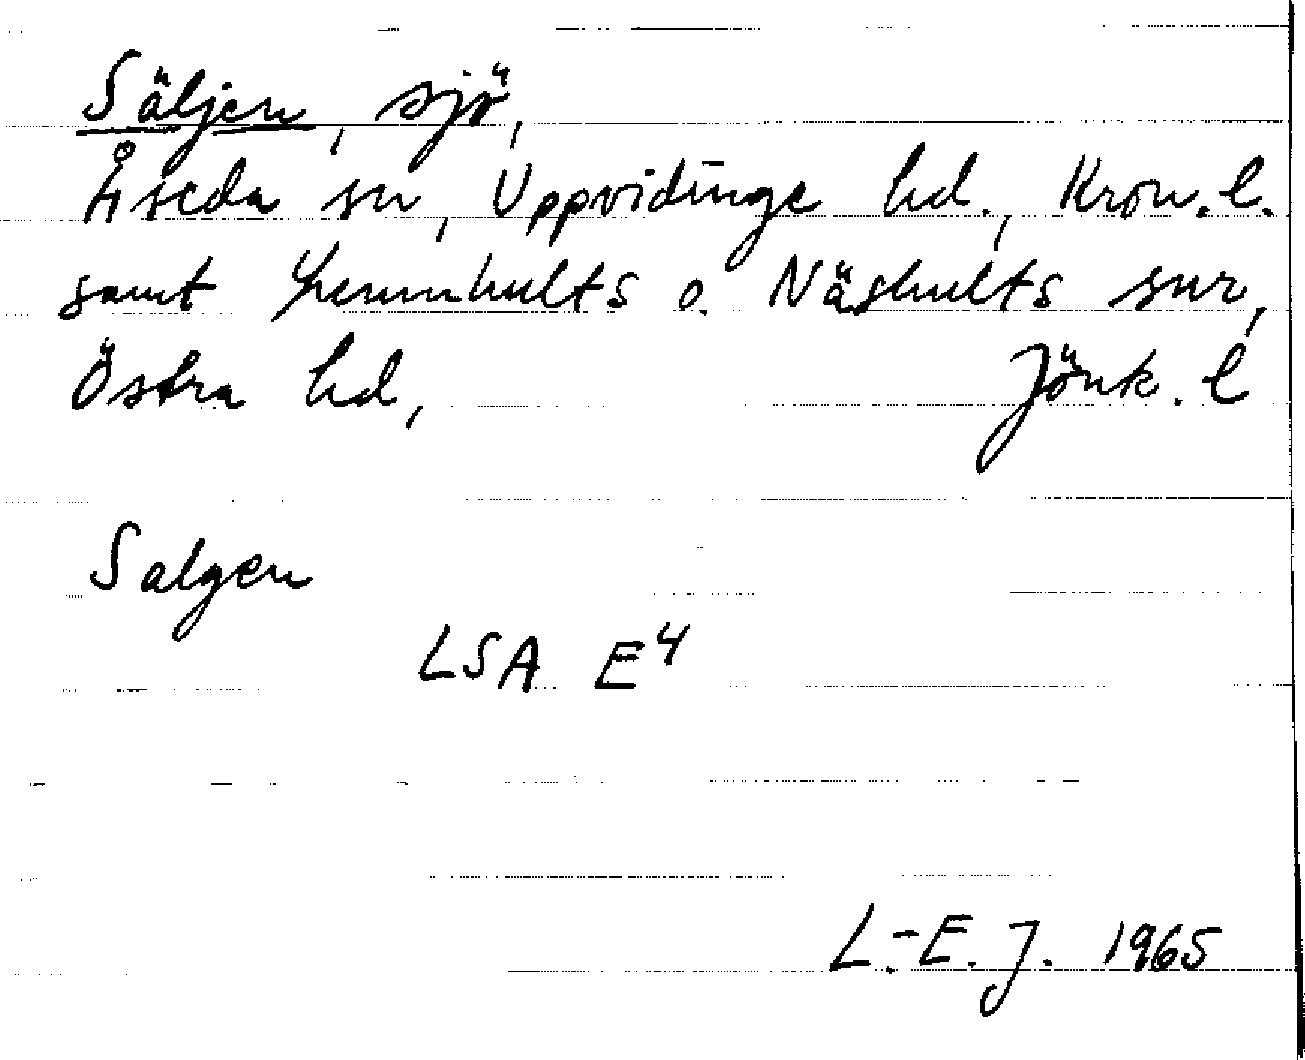 Säljen, sjö,
Åseda sn, Uppvidinge hd., Kron.l.
samt Lemnhults o. Näshults snr,
Östra hd, Jönk. l
Salgen
LSA E4
L.-E. J. 1965